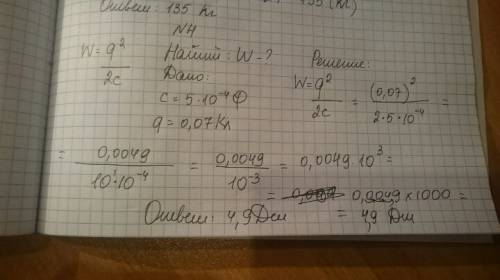 Ответ: 135 кг
N4
W = q² / 2c
Найти: W - ?
Дано:
c = 5·10⁻⁴ Ф
q = 0,07 Кл
Решение:
W = q² / 2c = (0,07)² / 2·5·10⁻⁴ =
= 0,0049 / 10¹·10⁻⁴ = 0,0049 / 10⁻³ = 0,0049·10³ =
= 0,0049 × 1000 =
= 4,9 Дж
Ответ: 4,9 Дж